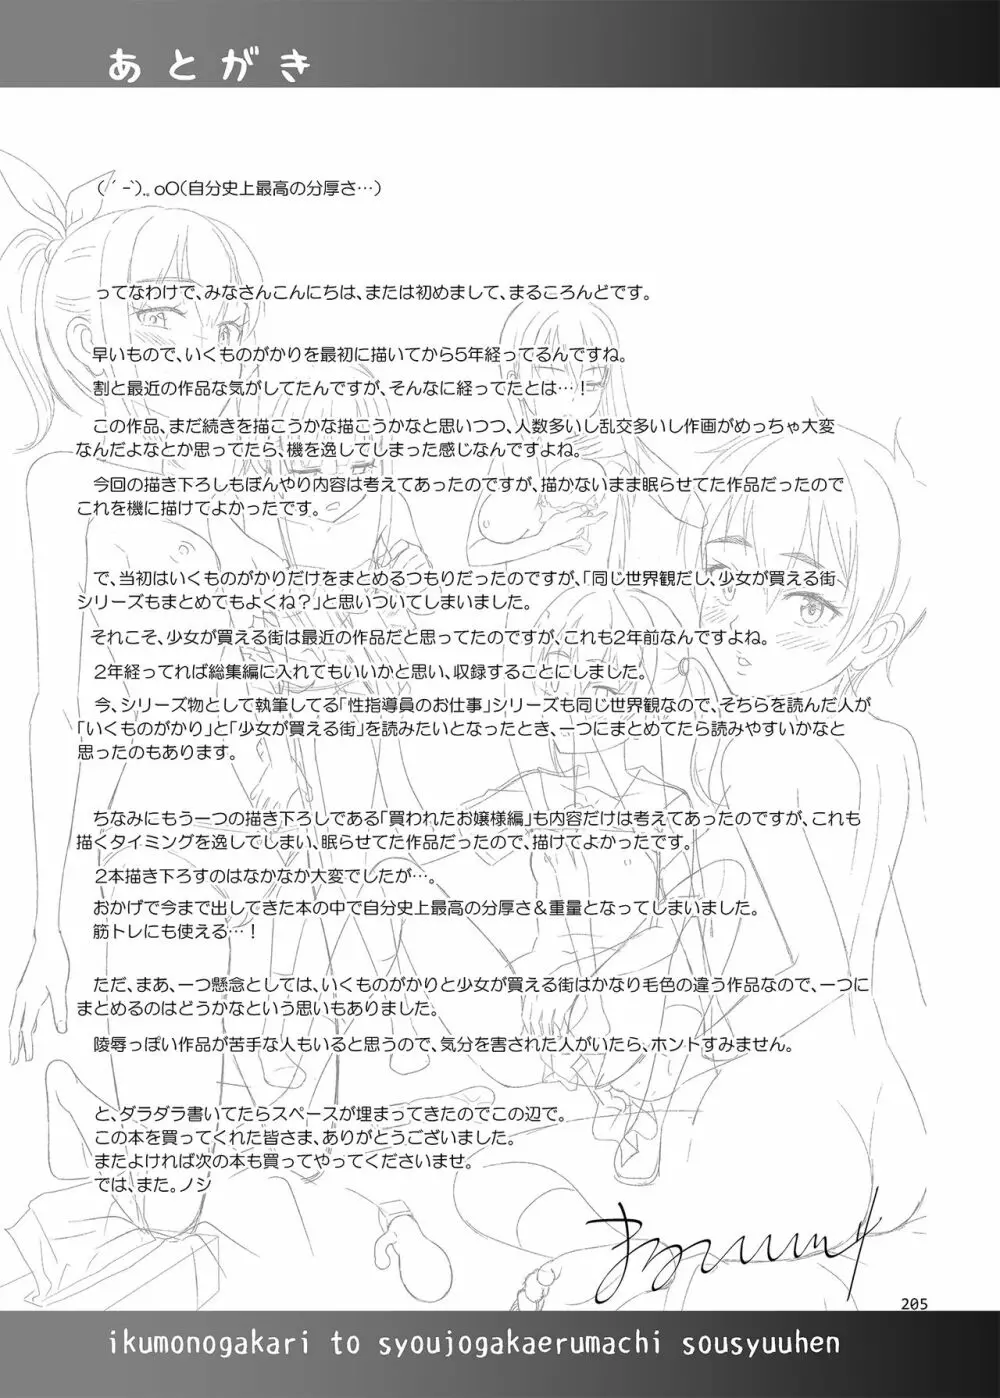 あとがき
( ´ -`).｡oO(自分史上最高の分厚さ…)
ってなわけで、みなさんこんにちは、または初めまして、まるころんどです。
早いもので、いくものがかりを最初に描いてから5年経ってるんですね。
割と最近の作品な気がしてたんですが、そんなに経ってたとは…！
この作品、まだ続きを描こうかな描こうかなと思いつつ、人数多いし乱交多いし作画がめっちゃ大変
なんだよなとか思ってたら、機を逸してしまった感じなんですよね。
今回の描き下ろしもぼんやり内容は考えてあったのですが、描かないまま眠らせてた作品だったので
これを機に描けてよかったです。
で、当初はいくものがかりだけをまとめるつもりだったのですが、「同じ世界観だし、少女が買える街
シリーズもまとめてもよくね？」と思いついてしまいました。
それこそ、少女が買える街は最近の作品だと思ってたのですが、これも2年前なんですよね。
2年経ってれば総集編に入れてもいいかと思い、収録することにしました。
今、シリーズ物として執筆してる「性指導員のお仕事」シリーズも同じ世界観なので、そちらを読んだ人が
「いくものがかり」と「少女が買える街」を読みたいとなったとき、一つにまとめてたら読みやすいかなと
思ったのもあります。
ちなみにもう一つの描き下ろしである「買われたお嬢様編」も内容だけは考えてあったのですが、これも
描くタイミングを逸してしまい、眠らせてた作品だったので、描けてよかったです。
2本描き下ろすのはなかなか大変でしたが…。
おかげで今まで出してきた本の中で自分史上最高の分厚さ＆重量となってしまいました。
筋トレにも使える…！
ただ、まあ、一つ懸念としては、いくものがかりと少女が買える街はかなり毛色の違う作品なので、一つに
まとめるのはどうかなという思いもありました。
陵辱っぽい作品が苦手な人もいると思うので、気分を害された人がいたら、ホントすみません。
と、ダラダラ書いてたらスペースが埋まってきたのでこの辺で。
この本を買ってくれた皆さま、ありがとうございました。
またよければ次の本も買ってやってくださいませ。
では、また。ノシ
205
ikumonogakari to syoujogakaerumachi sousyuuhen